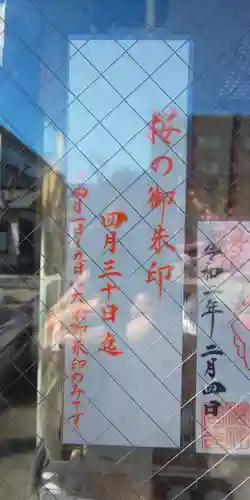 桜の御朱印
四月三十日迄
四月一日〜九日、大祓御朱印のみです
令和二年二月四日